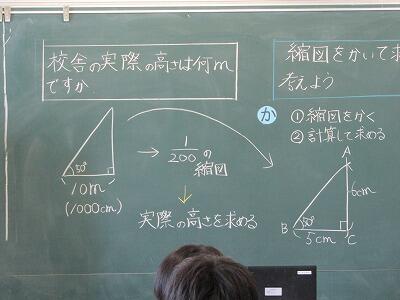 校舎の実際の高さは何m
ですか
縮図をかいて求
考えよう
か
①縮図をかく
②計算して求める
50°
10m
(1000cm)
→ 1/200の
縮図
↓
実際の高さを求める
A
6cm
B
50°
C
5cm